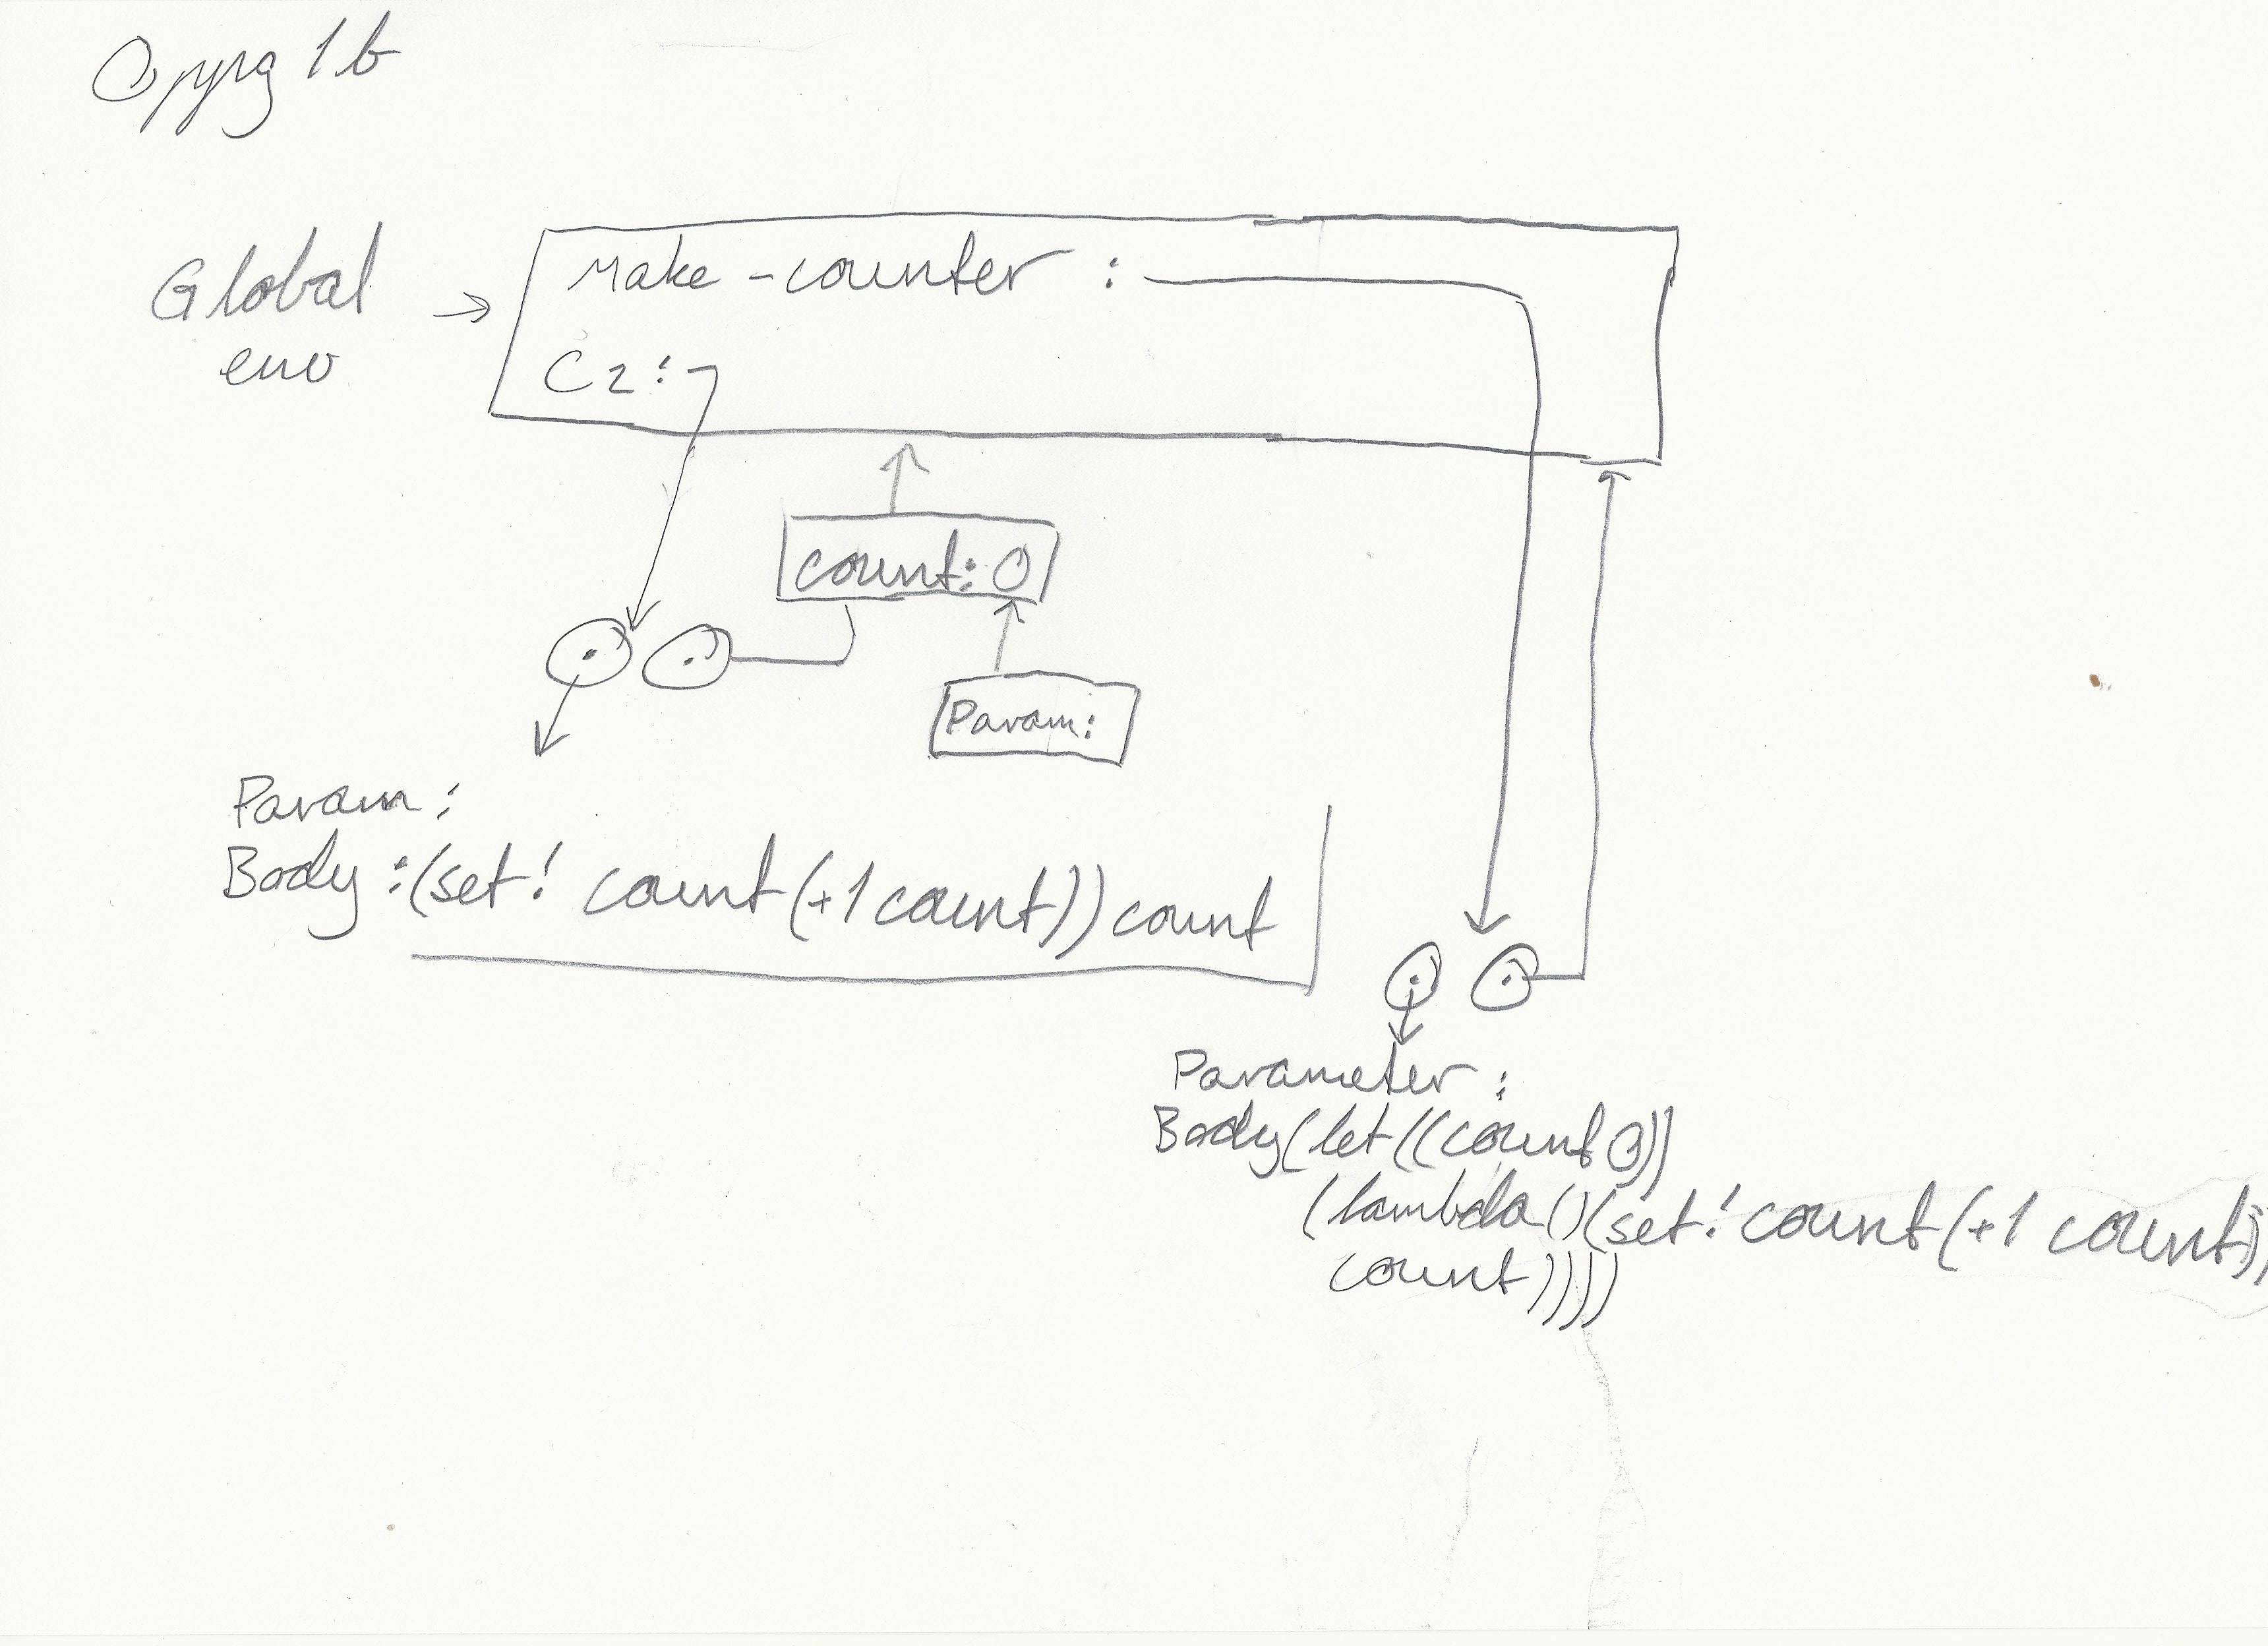 Oppg 1b
Global
env
Make-counter :
C2:
count: 0
Param:
Param:
Body:(set! count(+1 count))count
Parameter:
Body(let((count 0))
(lambda()(set! count(+1 count))
count))))